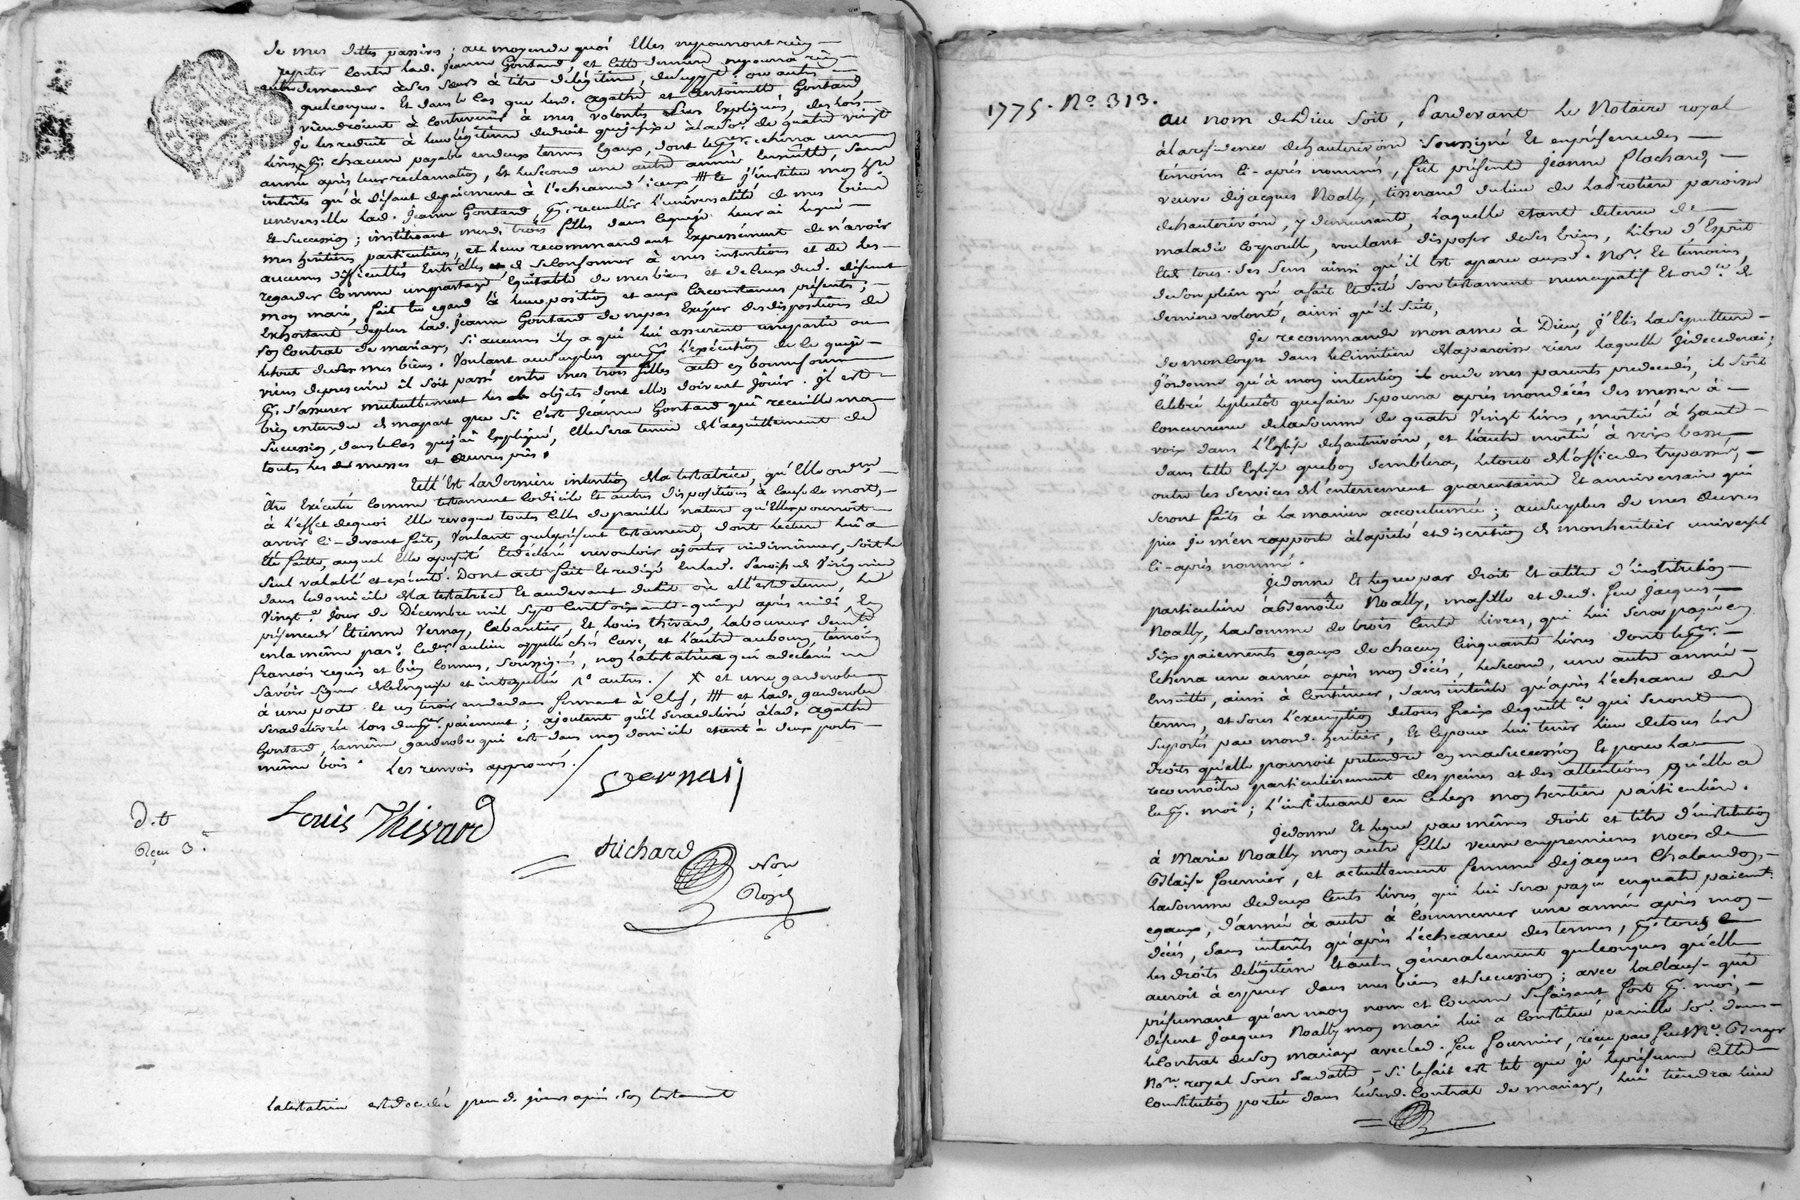 de mes dettes passives ; au moyen de quoi Elles ne pourront rien
repeter contre lad. Jeanne Goutard, et cette derniere ne pourra rien
demander à ses sœurs à titre de légitime, ou autre
quelconque. Et dans le cas que lesd. agathe et antoinette Goutard
viendroient à contrevenir à mes volontés expliquées, dès lors
je les reduit à leur légitime de droit que je fixe à la som. de quatre vingt
livres pr. chacune payable en deux termes egaux, dont le per. echera une
année après leur reclamation, Et le second une autre année Ensuitte, sans
interets qu'à défaut de paiement à l'echeance d'iceux, /// Et j'institue mon her.
universelle lad. Jeanne Goutard pr. recuellir l'universalité de mes biens
Et succession ; instituant mesd. trois filles dans ce que je leur ai legué
mes heritieres particulieres, et leur recommandant Expressément de n'avoir
aucunes difficultés Entr'elles de se conformer à mes intentions et de les
regarder comme un partage Equitable de mes biens et de ceux dud. défunt
mon mari, fait eu egard à leur position et aux circonstances présentes ;
Exhortant de plus lad. Jeanne Goutard de ne pas Exiger des dispositions de
son contrat de mariage, si aucunes il y a qui lui assurent une partie ou
le tout de sor mes biens. Voulant au surplus que pr. l'exécution de ce que je
viens de prescrire il soit passé entre mes trois filles acte en bonne forme
pr. s'assurer mutuellement les objets dont elles doivent jouir. il est
bien entendu de ma part que si c'est Jeanne Goutard qui recueille ma
succession, dans le cas que j'ai Expliqué, Elle sera tenue de l'acquittement de
toutes les messes et œuvres pies.
Telle Est la derniere intention de la testatrice, qu'Elle ordonne
être Exécuté comme testament codicile et autres dispositions à cause de mort,
à l'effet de quoi Elle revoque toutes celles de pareille nature qu'Elle pourroit
avoir ci-devant fait, voulant que le présent testament, dont lecture lui a
été faitte, auquel Elle a persisté Et déclaré ne vouloir ajouter ni diminuer, soit le
seul valable et exécuté. Dont acte fait Et redigé
dans le domicile de la testatrice Et au devant du lit où elle est detenue, le
vingt e. jour de Décembre mil sept cent soixante-quinze après midi, En
présence d'Etienne Vernay, cabaretier, Et Louis Thivard, laboureur demt.
en la même par. celui au lieu appellé chés Carc, et l'autre au bourg, témoins
françois requis et bien connus, soussignés, non la testatrice qui a déclaré ne
savoir signer de l'enquise et interpellée n° autres. / X et une garderobe
à une porte Et un tiroir en dedans fermant à clef, /// et lad. garderobe
sera delivrée lors du per. paiement ; ajoutant qu'il sera delivré à lad. agathe
Goutard, la même garderobe qui est dans mon domicile etant à deux portes
même bois. Les renvois approuvés. /
Vernaij
Louis Thivard
d.t
Reçu 3.
Richard
Nore
Royal
La testatrice est decedée peu de jours après son testament
1775. No. 313.
au nom de Dieu soit, Pardevant le Notaire royal
à la residence de hauterivoire soussigné Et en présence des
témoins ci-après nommés, fut présente Jeanne Plochard,
veuve de jacques Noally, tisserand du lieu de la Frotiere paroisse
de hauterivoire, y demeurante, laquelle etant detenue de
maladie corporelle, voulant disposer de ses biens, libre d'Esprit
Et de tous ses sens ainsi qu'il est aparu auxd. Nore. Et témoins,
de son plein gré a fait Et dicté son testament nuncupatif Et ordre. de
derniere volonté, ainsi qu'il suit,
Je recommande mon ame à Dieu, j'Elis la sepulture
de mon corps dans le cimetiere de la paroisse riere laquelle je decederai ;
j'ordonne qu'à mon intention ou de mes parents predecedés, il soit
celebré le plutôt que faire se pourra après mon décès des messes à
concurrence de la somme de quatre vingt livres, moitié à haute
voix dans l'Eglise de hauterivoire, et l'autre moitié à voix basse
dans telle Eglise que bon semblera, le tout de l'office des trepassés,
outre les services de l'enterrement quarantaine Et anniversaire qui
seront faits à la maniere accoutumée ; au surplus de mes œuvres
pies je m'en rapporte à la pieté et discretion de mon heritier universel
ci-après nommé.
Je donne Et legue par droit Et a titre d'institution
particuliere à Benoîte Noally, ma fille et dud. feu jacques
Noally, la somme de trois cents livres, qui lui sera payée en
six paiements egaux de chacun cinquante livres dont le per.
Echera une année après mon décès, le second, une autre année
Ensuitte, ainsi à continuer, sans intérêts qu'après l'echeance des
termes, et sous l'exemption de tous fraix de quitte. qui seront
suportés par mond. heritier, Et le pour lui tenir lieu de tous les
droits qu'elle pourroit pretendre en ma succession Et pour la
reconnoître particulierement des peines et des attentions qu'elle a
Eu pr. moi ; l'instituant en ce legs mon heritiere particuliere.
Je donne Et legue par mêmes droit et titre d'institution
à Marie Noally mon autre fille veuve en premieres noces de
Blaise fournier, et actuellement femme de jacques Chalandon,
la somme de deux cents livres, qui lui sera payée en quatre paiemt.
egaux, d'année à autre à commencer une année après mon
décès, sans intérêts qu'après l'échéance des termes, pr. tous
les droits de légitime Et autres généralement quelconques qu'elle
auroit à esperer dans mes biens et succession ; avec la clause que
présumant qu'en mon nom et comme se faisant fort pr. moi,
défunt jacques Noally mon mari lui a constitué pareille some. dans
le contrat de son mariage avec led. feu fournier, reçu par feu Me. Berger
Nore. royal sous sa datte. Si le fait est tel que je le présume cette
constitution portée dans led. contrat de mariage, lui tiendra lieu